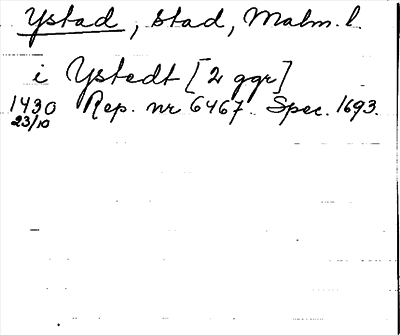 Ystad, stad, Malm. l.
i Ystedt [2 ggr]
1430 Rep. nr 6467. Spec. 1693.
23/10